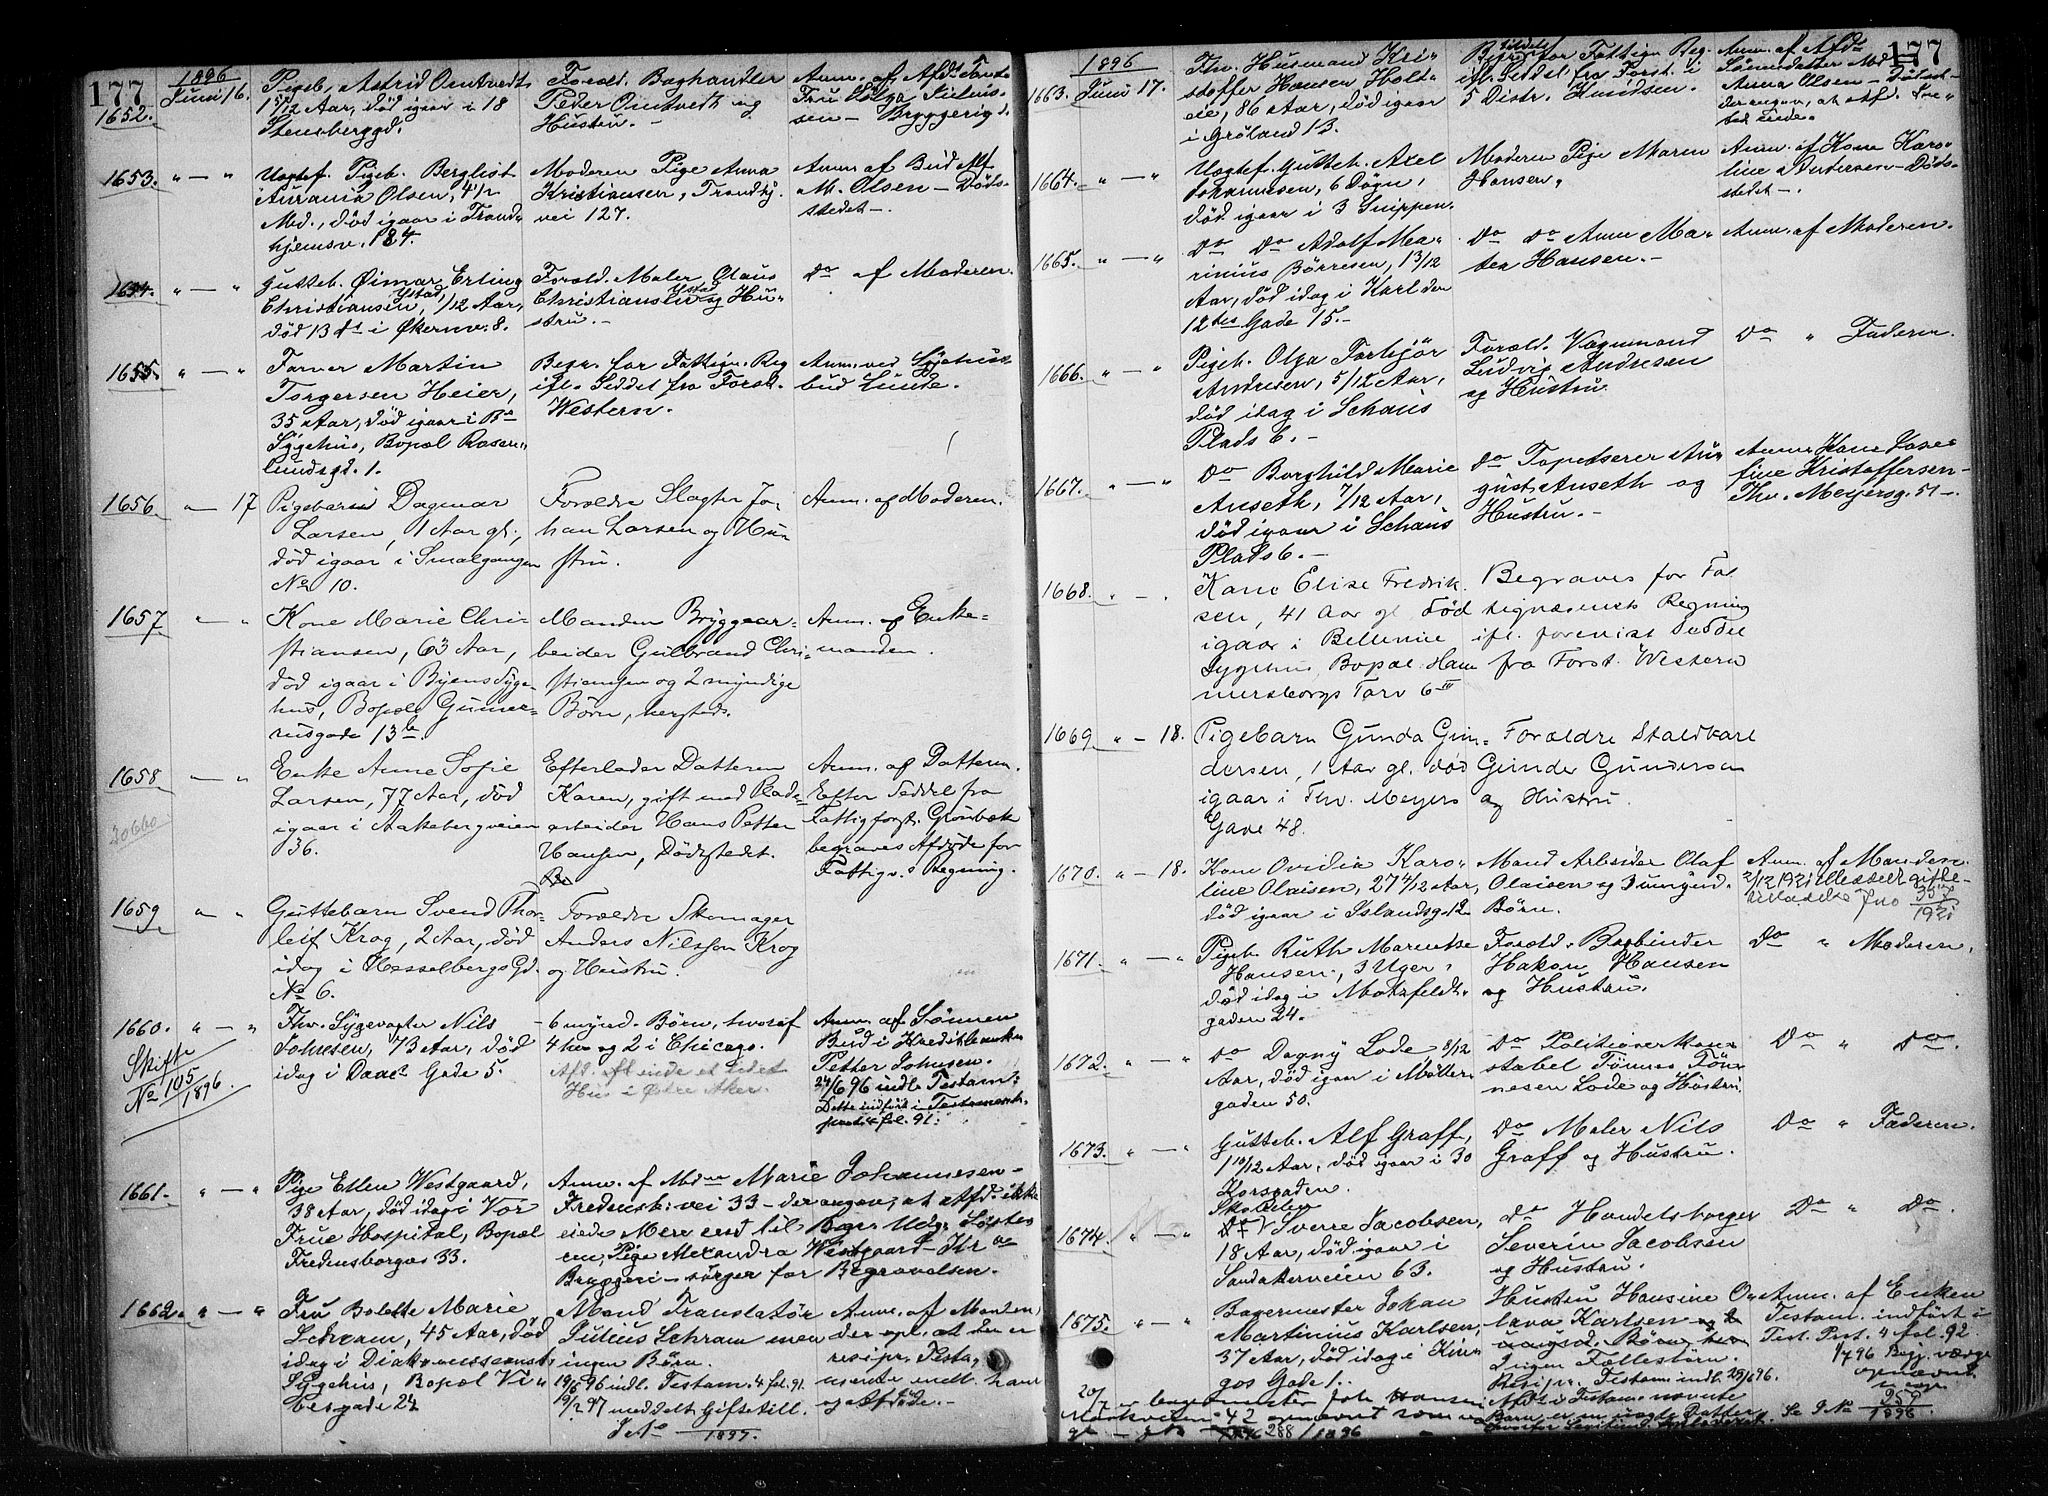 177
1896
1652. Juni 16. Pigeb. Astrid Omtvedt
1 5/12 Aar, død igaar i 18
Stensberggd.
Foræld. Baghandler
Peder Omtvedt og
Hustru. –
Anm. af Afdes Tante
Fru Helga
– Bryggerigd.
1653. " – " Uegtef. Pigeb. Berglist
Aurania Olsen, 4 1/2
Md., død igaar i Trond-
hjemsv. 184.
Moderen Pige Anna
Kristiansen, Trondhj.
vei 127.
Anm. af Bud
M. Olsen – Døds-
stedet –.
1654. " – " Gutteb. Øimar Erling
Christiansen Ystad, 1/12 Aar,
død 13 ds i Økernv. 8.
Foræld. Maler Olaus
Christiansen Ystad og Hu-
stru. –
Do af Moderen.
1655. " – " Farver Martin
Torgersen Heier,
35 Aar, død igaar i Bs
Sygehus, Bopæl Rosen-
lundsgd. 1.
Begr. for Fattigv. Reg
ifl. Seddel fra Forst.
Western.
Anm. ved Sygehus-
bud Lunde.
1656. " – 17 Pigebarn Dagmar
Larsen, 1 Aar gl.,
død igaar i Smalgangen
No 10.
Forældre Slagter Jo-
han Larsen og Hu-
stru.
Anm. af Moderen.
1657. " – " Kone Marie Chri-
stiansen, 63 Aar,
død igaar i Byens Syge-
hus, Bopæl Gunne-
rusgade 13 b.
Manden Bryggeriar-
beider Gulbrand Chri-
stiansen og 2 myndige
Børn, hersteds.
Anm. af Enke-
manden.
1658. – "
20660
Enke Anne Sofie
Larsen, 77 Aar, død
igaar i Aakebergveien
36.
Efterlader Datteren
Karen, gift med Plade-
arbeider Hans Petter
Hansen, Dødstedet.
Anm. af Datteren.
Efter Seddel fra
Fattigforst. Grønbæk
begraves Afdøde for
Fattigv.s Regning.
1659 " " Guttebarn Svend Thor-
leif Krog, 2 Aar, død
idag i Hesselbergs Gd.
No 6.
Forældre Skomager
Anders Nilsson Krog
og Hustru.
1660. " – "
Skifte
No 105/1896.
Fhv. Sygevogter Nils
Johnsen, 73 Aar, død
idag i Daaes Gade 5.
– 6 mynd. Børn, hvoraf
4 her og 2 i Chicago.
Afd. eiede et Sidet
Hus i Østre Aker.
Anm. af Sønnen
Bud i Kreditbanken
Petter Johnsen.
24/6 96 indl. Testam.
Dette indført i Testament-
prot. 4 fol. 91.
1661. " – " Pige Ellen Westgaard,
38 Aar, død idag i Vor
Frue Hospital, Bopæl
Fredensborgv. 33.
Anm. af Mdm Marie Johannesen –
Fredensb. vei 33 – der angav, at Afd. ikke
eiede Mere end til Begr. Udg. Søste-
ren, Pige Alexandra Westgaard –
Bryggeri – sørger for Begravelsen.
1662. " – " Fru Bolette Marie
Schram, 45 Aar, død
idag i Diakonisseanst.
Sygehus, Bopæl Vi-
besgade 24
Mand Translatør
Julius Schram men
ingen Børn.
19/6 96 indl. Testam. 4 fol. 91
19/2 97 meddelt Giftetill.
J No /1897.
Anm. af Manden,
der opl. at den er
recipr. Testa-
mente mell. ham
og Afdøde. –
177
1896
1663. Juni 17. Fhv. Husmand Kri-
stoffer Hansen, Holt-
eie, 86 Aar, død igaar
i Grøland 13.
Begr. for Fattigv. Reg.
ifl. Seddel fra Forst. i
5 Distr. Knudsen.
Anm. af Afds
Sønnedatter Md
Anna Olsen – Dødsst –
der angav, at Afd. Inte-
tod eiede. –
1664. " – " Uegtef. Gutteb. Axel
Johannesen, 6 Døgn,
død igaar i 3 Snippen.
Moderen Pige Maren
Hansen.
Anm. af Kone Karo-
line Andersen – Døds-
stedet –.
1665. " – " Do Do Adolf Ma-
rinius Børresen, 13/12
Aar, død idag i Karl den
12tes Gade 15. –
Do Do Anne Ma-
tea Hansen. –
Anm. af Moderen.
1666. " – " Pigeb. Olga Torbjør
Andresen, 5/12 Aar,
død idag i Schaus
Plads 6. –
Foræld. Vognmand
Ludvig Andresen
og Hustru.
Do " Faderen.
1667. " – " Do Borghild Marie
Anseth, 7/12 Aar,
død igaar i Schaus
Plads 6. –
Do Tapetserer Au-
gust Anseth og
Hustru. –
Anm. Kone Jose-
fine Kristoffersen –
Thv. Meyersg. 51 –.
1668. " – . Kone Elise Fredrik-
sen, 41 Aar gl. død
igaar i Bellevue
Sygehus, Bopæl Ham-
mersborgs Torv 6 III
Begraves for Fat-
tigvæsenets Regning
ifl. forevist Seddel
fra Forst. Western
1669 " – 18. Pigebarn Gunda Gun-
dersen, 1 Aar gl. død
igaar i Thv. Meyers
Gade 48.
Forældre Staldkarl
Gunder Gundersen
og Hustru.
1670. " – 18. Kone Ovidia Karo-
line Olaisen, 27 4/12 Aar,
død igaar i Islandsg. 12
Mand Arbeider Olaf
Olaisen og 3 umynd.
Børn.
Anm. af Manden.
2/12 1921 Meddelt gifte-
tilladelse Jno /1921
1671. " – " Pigeb. Ruth Marentse
Hansen, 3 Uger,
død idag i Motzfeldt-
gaden 24.
Foræld. Bogbinder
Hakon Hansen
og Hustru.
Do " Moderen.
1672. " – " Do Dagny Lode, 8/12
Aar, død igaar i Møller-
gaden 50.
Do Politioverkon-
stabel Tønnes Tøn-
nesen Lode og Hustru.
Do " Do.
1673. " – " Gutteb. Alf Graff,
1 10/12 Aar, død igaar i 30
Korsgaden.
Do Maler Nils
Graff og Hustru.
Do " Faderen.
1674. " – " Skoelev
Sverre Jacobsen,
18 Aar, død igaar i
Sandakerveien 63.
Do Handelsborger
Severin Jacobsen
og Hustru.
Do " Do.
1675. " – " Bagermester Johan
Martinius Karlsen,
37 Aar, død idag i Kin-
gos Gade 1. –
Hustru Hansine O-
lava Karlsen
Ingen Fællesbørn.
Resipr. Testam indl. 29/6 96.
Afds i Testam. nævnte
Barn er en uægte Datter
Anm. af Enken
Testam. indført i
Test. Prot. 4 fol. 92.
1/7 96 Begj. værge
opnævnt
Se J No 259/1896
20/7 bagermester Joh. Hansen
Markveien 42 opnævnt som
288/1896